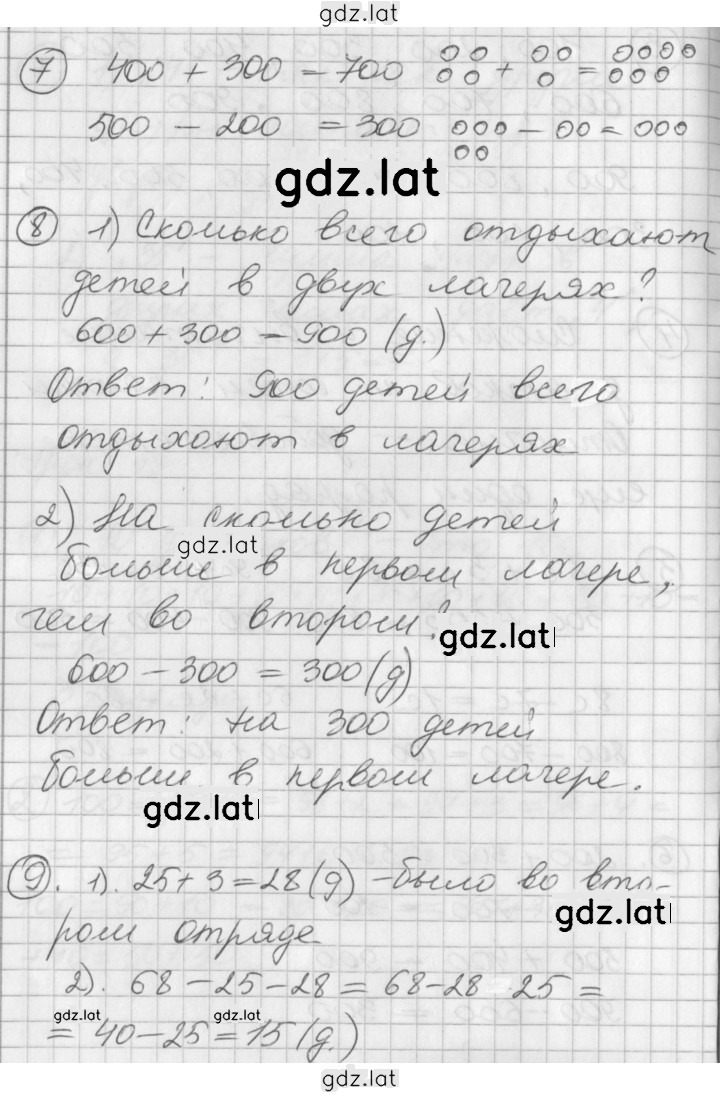 gdz.lat
7 400 + 300 = 700 + =
500 - 200 = 300 - =
gdz.lat
8 1) Сколько всего отдыхают
детей в двух лагерях?
600 + 300 = 900 (д.)
Ответ: 900 детей всего
отдыхают в лагерях
2) На сколько детей
gdz.lat
больше в первом лагере,
чем во втором?
gdz.lat
600 - 300 = 300 (д)
Ответ: на 300 детей
больше в первом лагере.
gdz.lat
9. 1). 25 + 3 = 28 (д) - было во вто-
gdz.lat
ром отряде
2). 68 - 25 - 28 = 68 - 28 25 =
gdz.lat gdz.lat
= 40 - 25 = 15 (д.)
gdz.lat